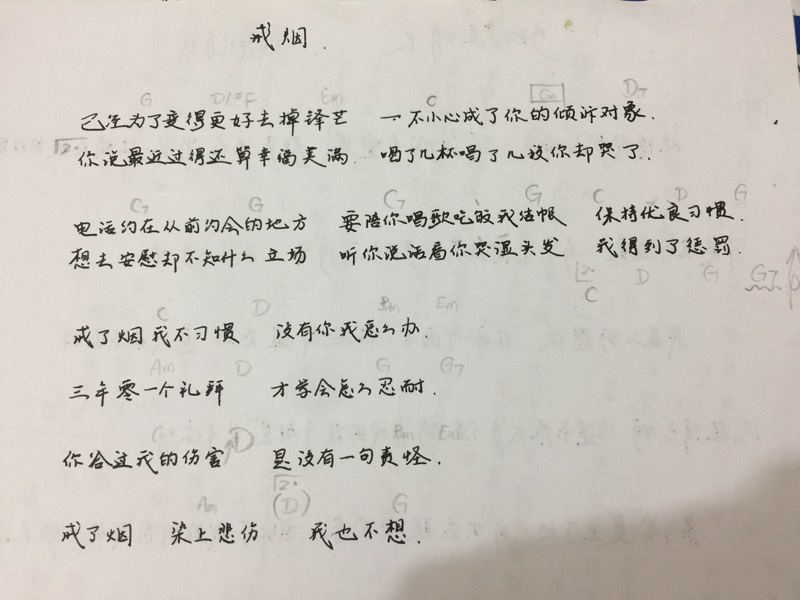 戒烟.
G D/#F Em C Cm D7
已经为了变得更好去掉锋芒 一不小心成了你的倾诉对象.
你说最近过得还算幸福美满 喝了几杯喝了几杯你却哭了.
C7 G C7 G C D G
电话约在从前约会的地方 要陪你唱歌吃饭我结帐 保持优良习惯.
想去安慰却不知什么立场 听你说话看你哭湿头发 我得到了惩罚.
C D G G7
C D Bm Em
戒了烟我不习惯 没有你我怎么办.
Am D G G7
三年零一个礼拜 才学会怎么忍耐.
C D Bm Em
你给过我的伤害 是没有一句责怪.
Am (D) G
戒了烟 染上悲伤 我也不想.